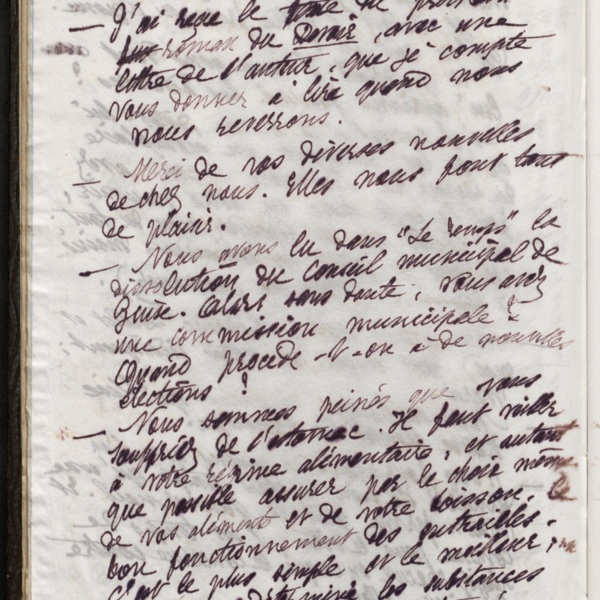 — J'ai reçu le
roman du Devoir, avec une
lettre de l'auteur, que je compte
vous donner à lire quand nous
nous reverrons.
— Merci de vos diverses nouvelles
de chez nous. Elles nous font tout
de plaisir.
— Nous avons lu dans "Le Temps" la
dissolution du Conseil municipal de
Guise. Alors sans doute, vous avez
une commission municipale ?
Quand procède-t-on à de nouvelles
élections ?
— Nous sommes peinés que vous
souffriez de l'estomac. Il faut veiller
à votre régime alimentaire, et autant
que possible assurer par le choix même
de vos aliment et de votre boisson, le
bon fonctionnement des entrailles.
C'est le plus simple et le meilleur
les substances